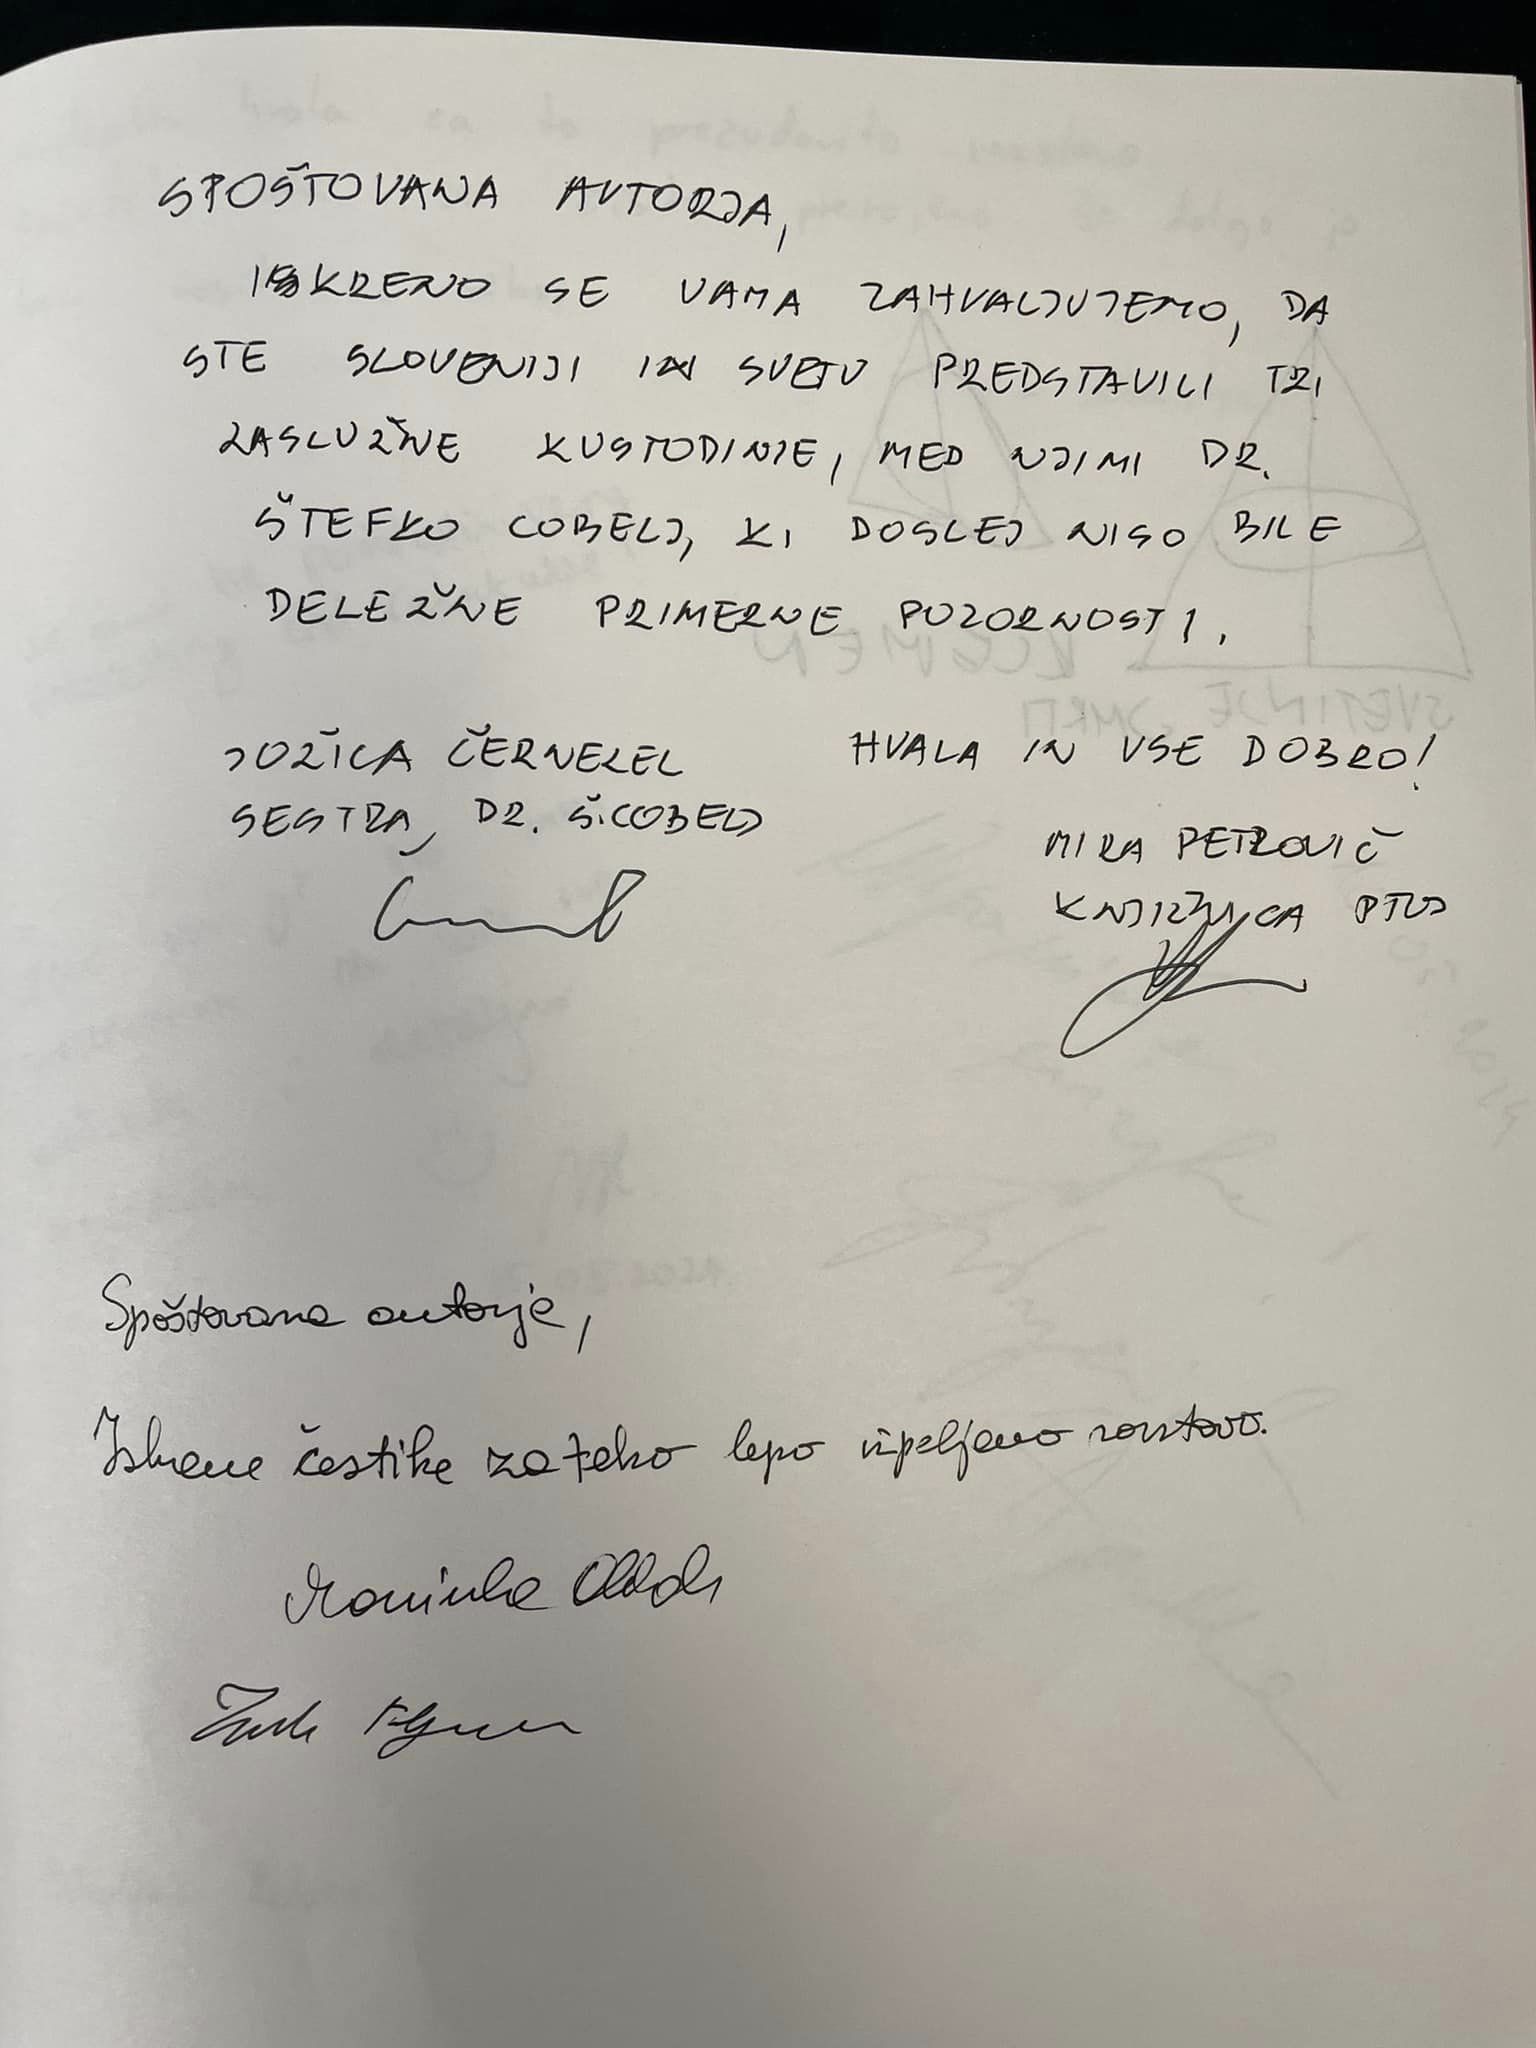 SPOŠTOVANA AVTORJA,
ISKRENO SE VAMA ZAHVALJUJEMO, DA
STE SLOVENIJI IN SVETU PREDSTAVILI TRI
ZASLUŽNE KUSTODINJE, MED NJIMI DR.
ŠTEFKO COBELJ, KI DOSLEJ NISO BILE
DELEŽNE PRIMERNE POZORNOSTI.
HVALA IN VSE DOBRO!
JOŽICA ČERNEZEL
SESTRA, DR. Š. COBELJ
MIRA PETROVIČ
KNJIŽNICA PTUJ
Spoštovana avtorja,
Iskrene čestitke za tako lepo izpeljano razstavo.